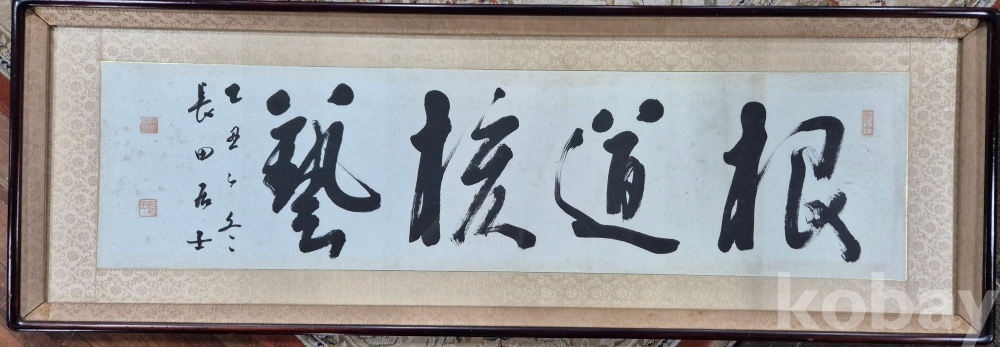 根道核藝
乙丑之冬
長田居士
kobay